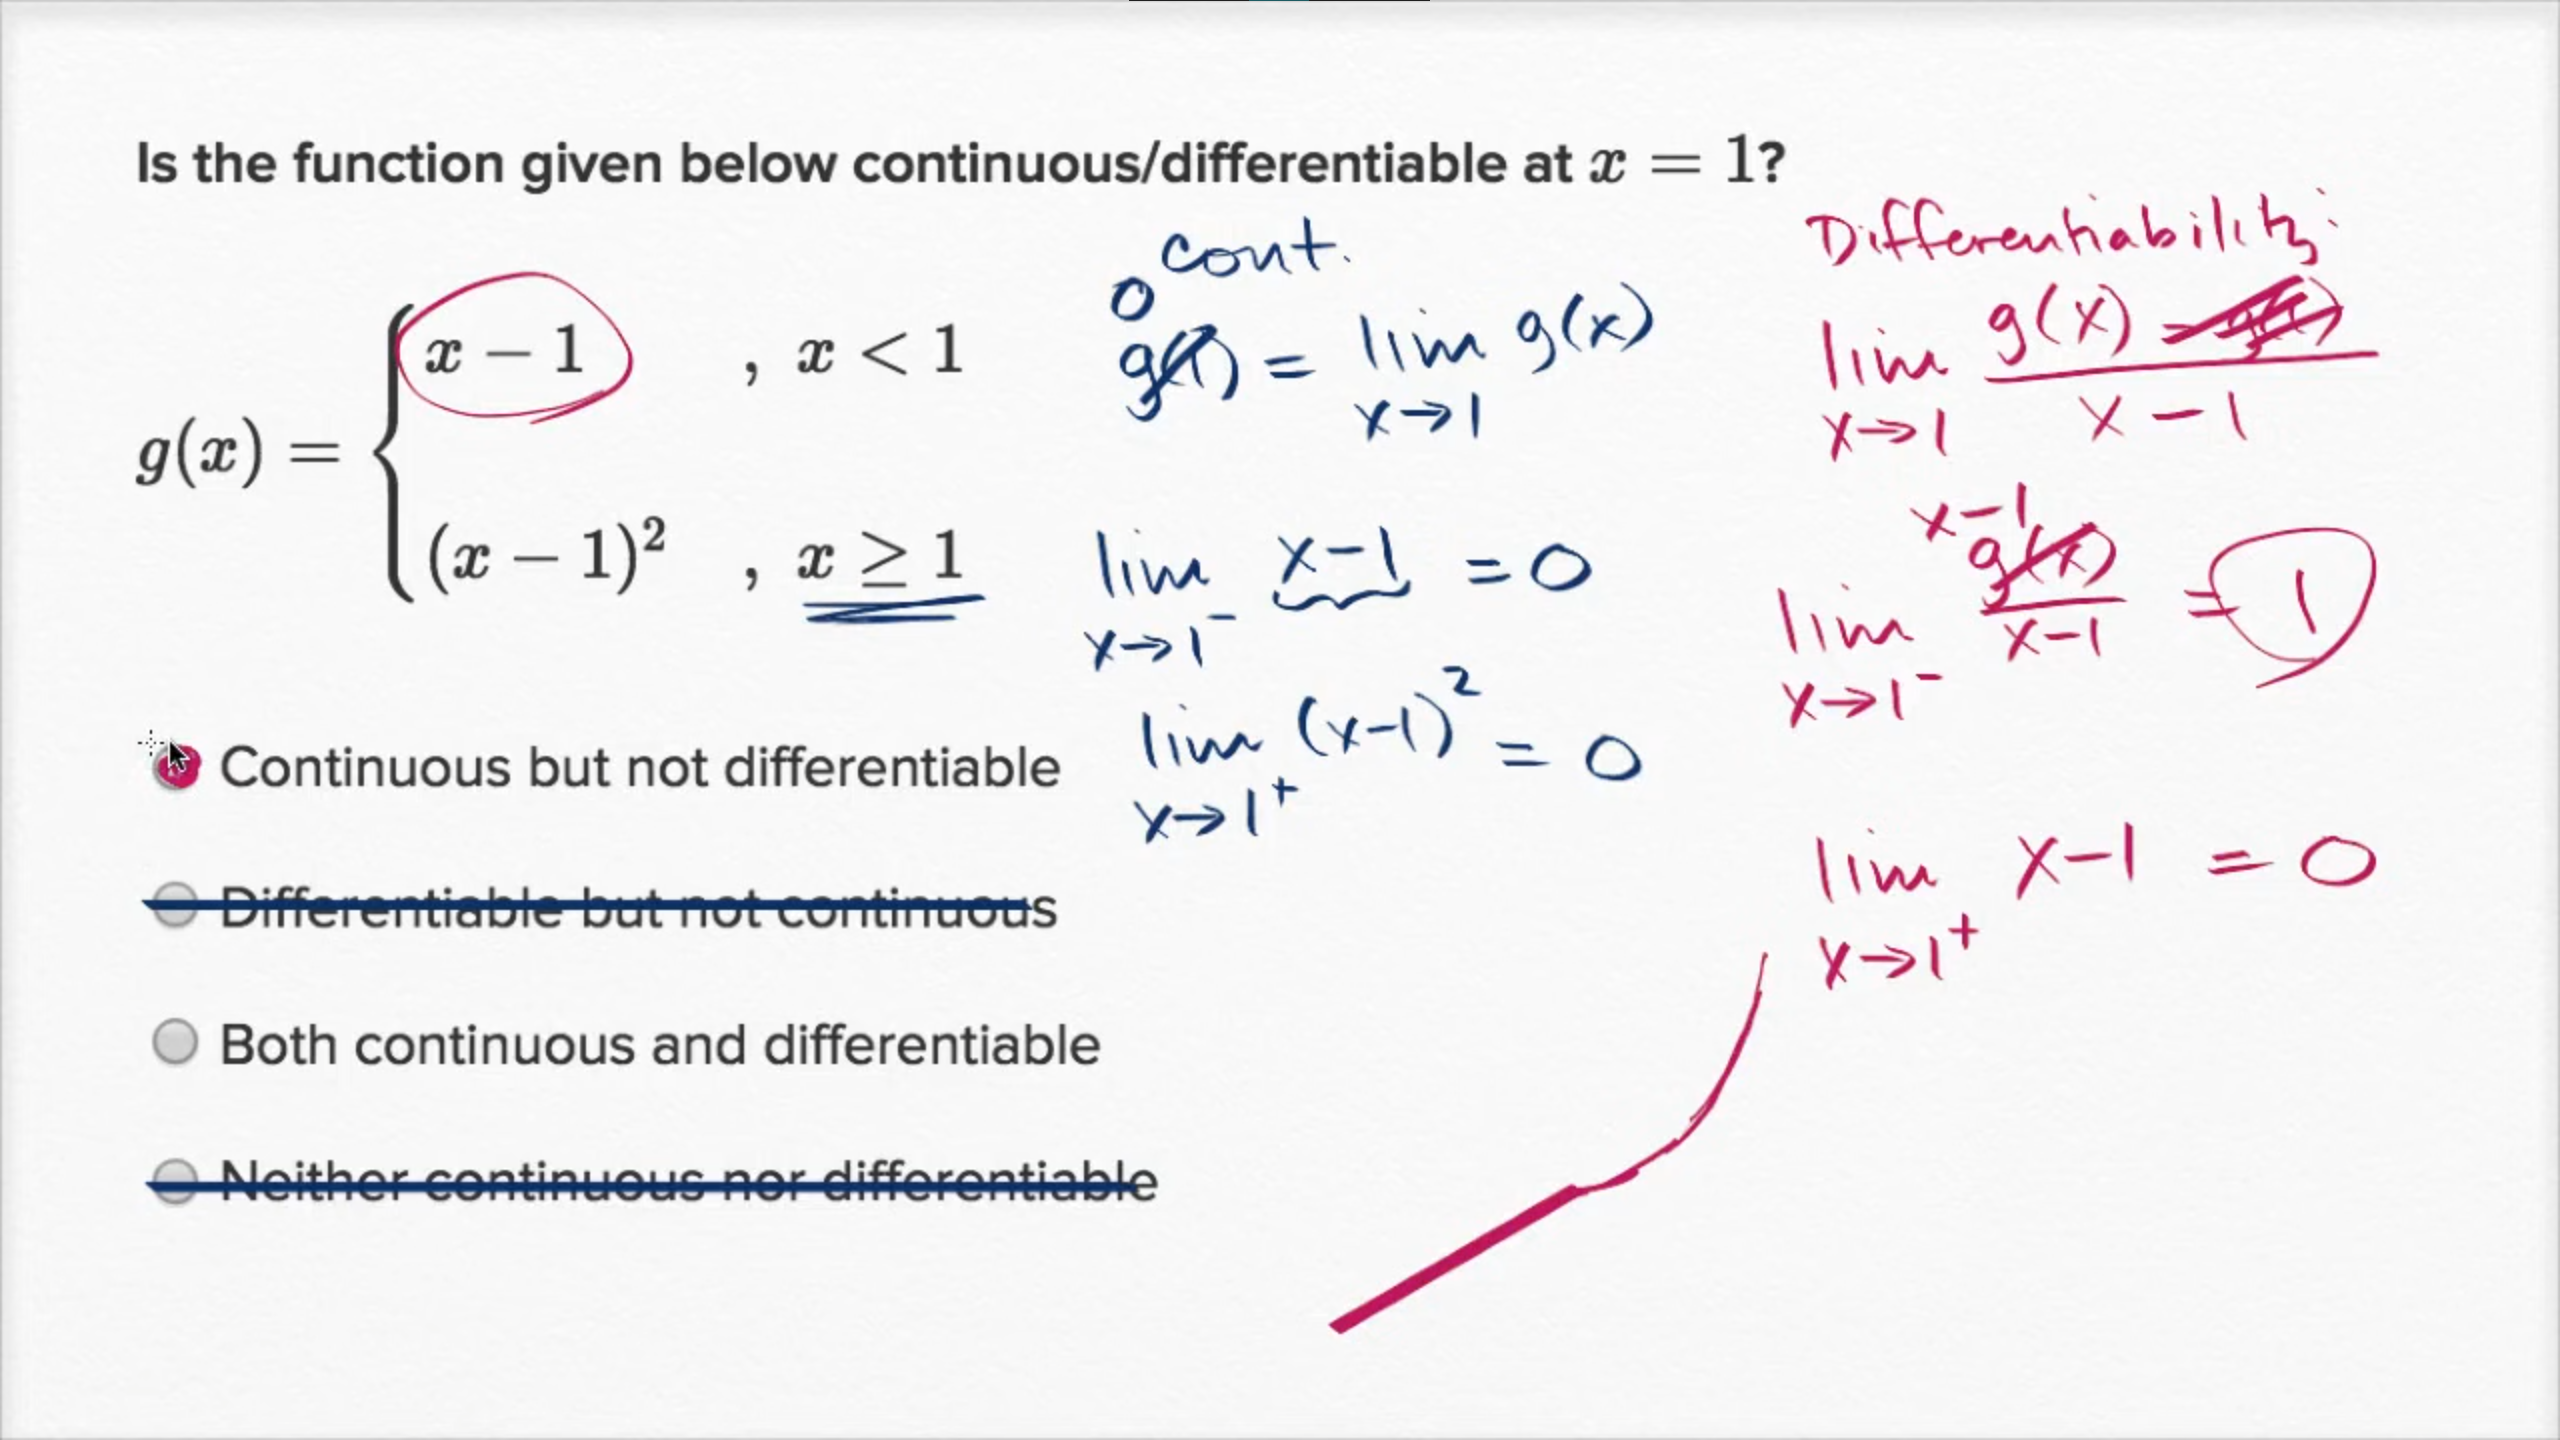 Is the function given below continuous/differentiable at x = 1?
g(x) = { x − 1 , x < 1
(x − 1)² , x ≥ 1
Continuous but not differentiable
Differentiable but not continuous
Both continuous and differentiable
Neither continuous nor differentiable
cont.
0
g(1) = lim g(x)
x→1
lim x−1 = 0
x→1⁻
lim (x−1)² = 0
x→1⁺
Differentiability:
lim g(x) − g(1)
x→1 x − 1
x−1
g(x)
lim x−1 = 1
x→1⁻
lim x−1 = 0
x→1⁺